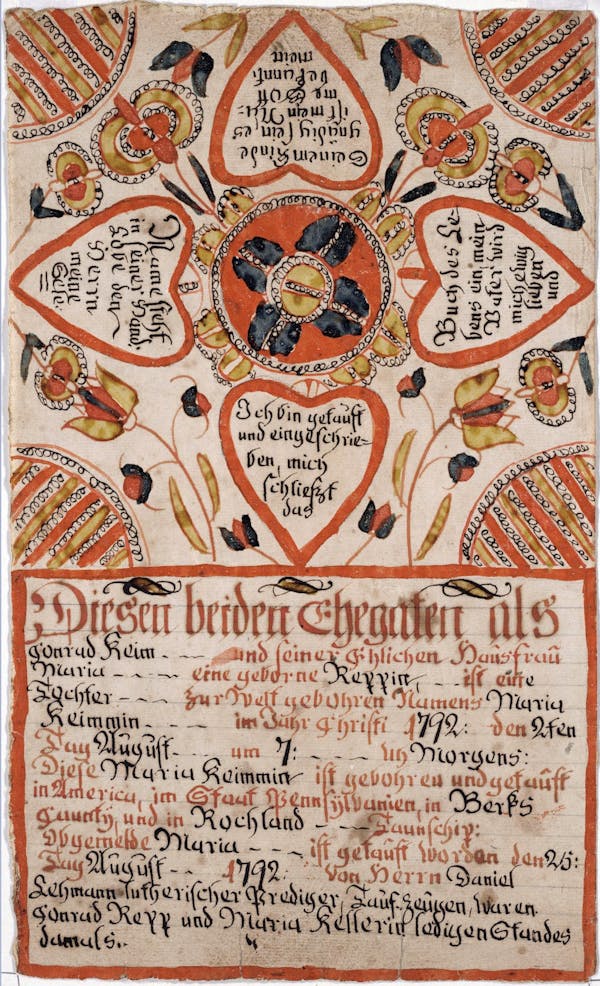 Ich bin getauft
und eingeschrie-
ben, mich
schließt
das
Buch des Le-
bens ein, mein
Vater wird
mich ewig
lieben
und
Seinem Kinde
gnädig sein es
ist mein Na-
me Gott
bekannt
mein
Name steht
in seiner Hand
Lobe den
Hern
meine
Sele
Diesen beiden Ehegaten als
Conrad Keim - - - und seiner Ehlichen Hausfrau
Maria - - - - eine geborne Reppin, - - ist eine
Tochter - - - - zur Welt gebohren Namens Maria
Keimmin - - - - im Jahr Christi 1792: den 2ten
Tag August - - - um 7: - - - Uh Morgens:
Diese Maria Keimmin ist gebohren und getauft
in America, im Staat Pennsylvanien, in Berks
Caunty, und in Rochland - - - Taunschip:
Obgemelde Maria - - - ist getauft worden den 25:
Tag August - - 1792: von Herrn Daniel
Lehmann lutherischer Prediger, Taufzeugen, waren
Conrad Repp und Maria Kellerin ledigen Standes
damals.